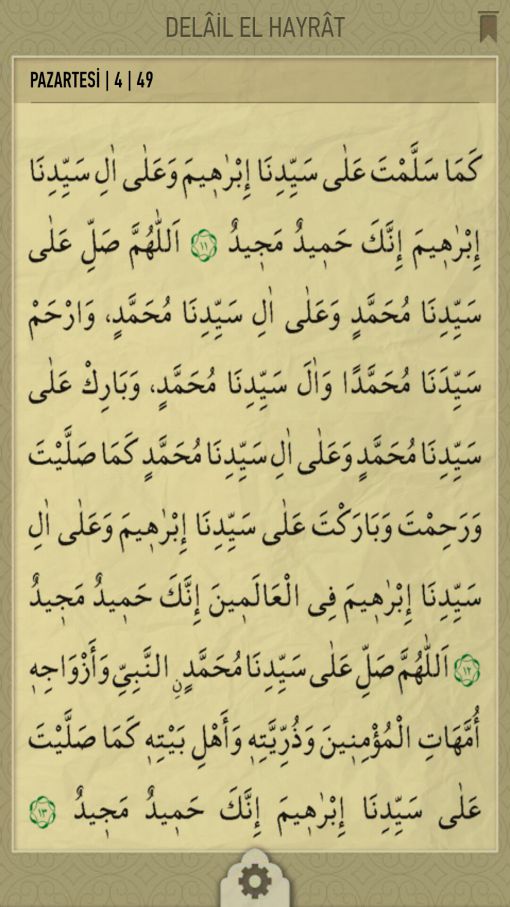 DELÂİL EL HAYRÂT
PAZARTESİ | 4 | 49
كَمَا سَلَّمْتَ عَلٰى سَيِّدِنَا إِبْرٰهِيمَ وَعَلٰى اٰلِ سَيِّدِنَا
إِبْرٰهِيمَ إِنَّكَ حَمِيدٌ مَجِيدٌ ١١ اَللّٰهُمَّ صَلِّ عَلٰى
سَيِّدِنَا مُحَمَّدٍ وَعَلٰى اٰلِ سَيِّدِنَا مُحَمَّدٍ، وَارْحَمْ
سَيِّدَنَا مُحَمَّدًا وَاٰلَ سَيِّدِنَا مُحَمَّدٍ، وَبَارِكْ عَلٰى
سَيِّدِنَا مُحَمَّدٍ وَعَلٰى اٰلِ سَيِّدِنَا مُحَمَّدٍ كَمَا صَلَّيْتَ
وَرَحِمْتَ وَبَارَكْتَ عَلٰى سَيِّدِنَا إِبْرٰهِيمَ وَعَلٰى اٰلِ
سَيِّدِنَا إِبْرٰهِيمَ فِى الْعَالَمِينَ إِنَّكَ حَمِيدٌ مَجِيدٌ
١٢ اَللّٰهُمَّ صَلِّ عَلٰى سَيِّدِنَا مُحَمَّدٍ نِ النَّبِيِّ وَأَزْوَاجِهِ
أُمَّهَاتِ الْمُؤْمِنِينَ وَذُرِّيَّتِهِ وَأَهْلِ بَيْتِهِ كَمَا صَلَّيْتَ
عَلٰى سَيِّدِنَا إِبْرٰهِيمَ إِنَّكَ حَمِيدٌ مَجِيدٌ ١٣